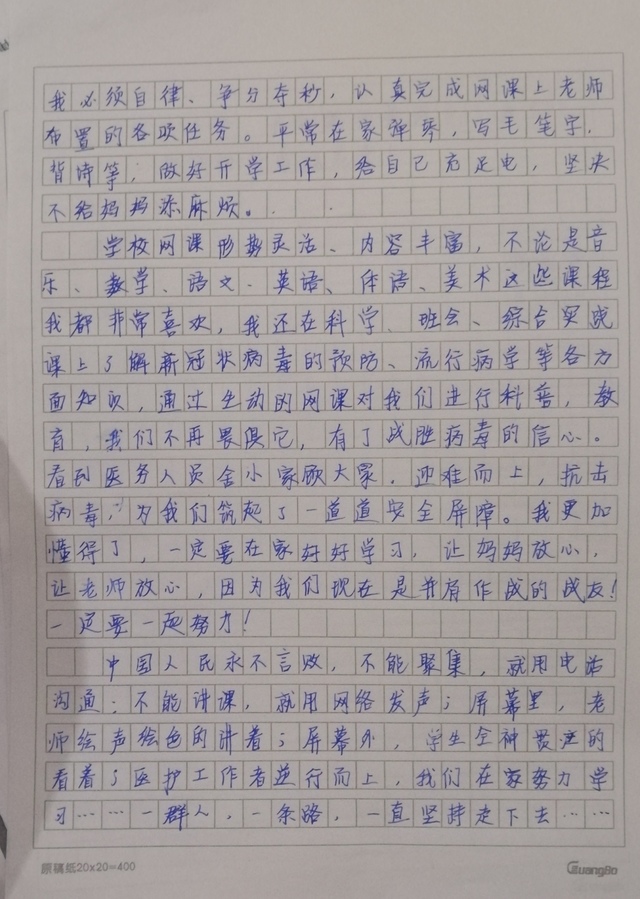 我必须自律、争分夺秒，认真完成网课上老师
布置的各项任务。平常在家弹琴，写毛笔字，
背诗等，做好开学工作，给自己充足电，坚决
不给妈妈添麻烦。
学校网课形势灵活、内容丰富，不论是音
乐、数学、语文、英语、体语、美术这些课程
我都非常喜欢，我还在科学、班会、综合实践
课上了解新冠状病毒的预防、流行病学等各方
面知识，通过生动的网课对我们进行科普，教
育，我们不再畏惧它，有了战胜病毒的信心。
看到医务人员舍小家顾大家，迎难而上，抗击
病毒，为我们筑起了一道道安全屏障。我更加
懂得了，一定要在家好好学习，让妈妈放心，
让老师放心，因为我们现在是并肩作战的战友！
一定要一起努力！
中国人民永不言败，不能聚集，就用电话
沟通；不能讲课，就用网络发声；屏幕里，老
师绘声绘色的讲着；屏幕外，学生全神贯注的
看着了医护工作者逆行而上，我们在家努力学
习……一群人，一条路，一直坚持走下去……
原稿纸20x20=400
GuangBo